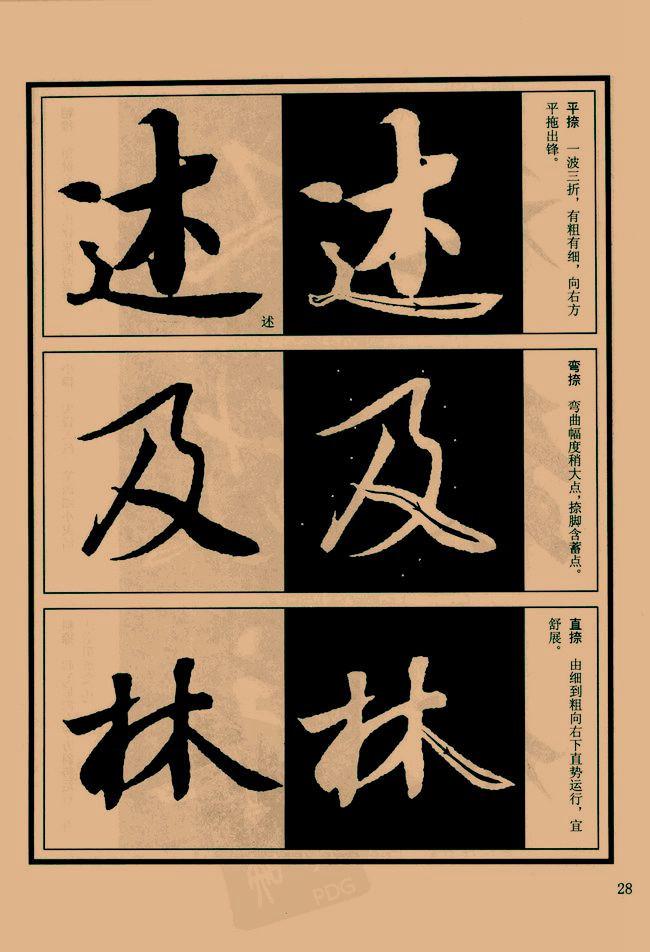 平捺 一波三折，有粗有细，向右方
平拖出锋。
述 述
述
弯捺 弯曲幅度稍大点，捺脚含蓄点。
及 及
直捺 由细到粗向右下直势运行，宜
舒展。
林 林
28
PDG